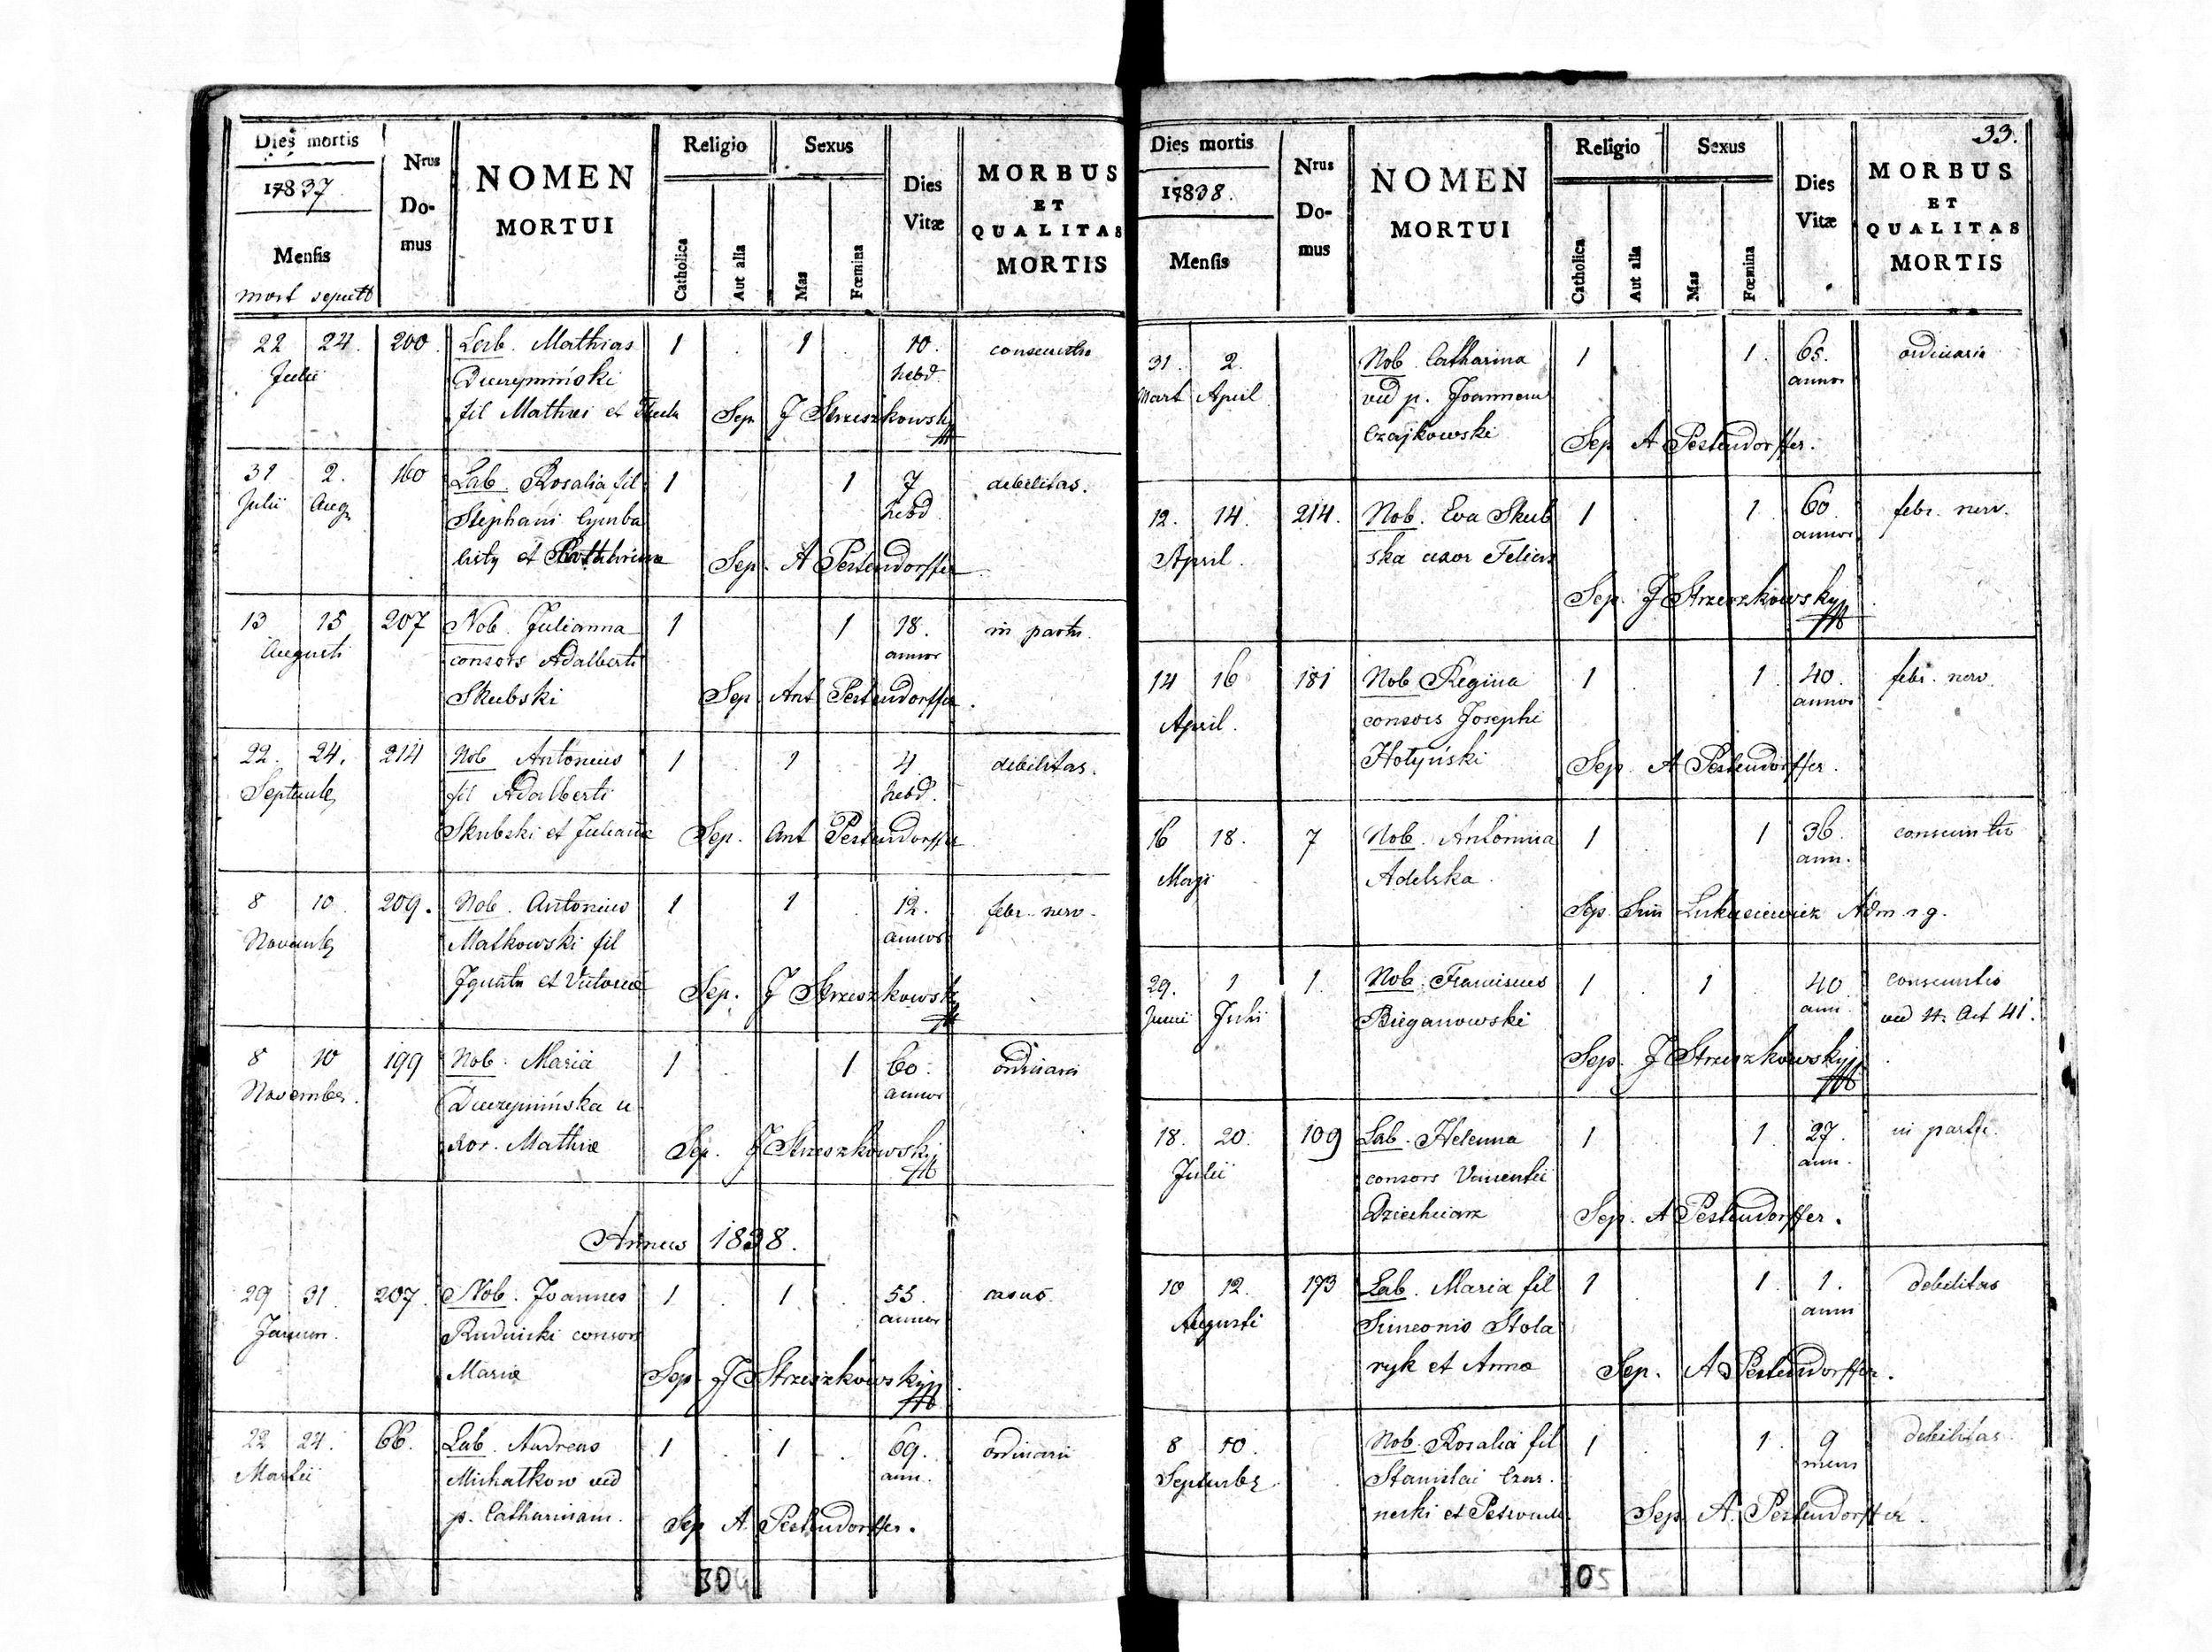 Dies mortis
17837.
Mensis
mort sepult
Nrus
Do-
mus
NOMEN
MORTUI
Religio
Catholica
Aut alia
Sexus
Mas
Fœmina
Dies
Vitæ
MORBUS
ET
QUALITAS
MORTIS
22 24. 200. Lab. Mathias 1 . 1 . 10.
Julii hebd.
fil Mathæi et Sep J Strzeszkowsky
31 2. 160 Lab. Rosalia fil 1 1 7 debilitas.
Julii Aug Stephani Cymba hebd
listy et Sep. A Pestendorffer
13 15 207 Nob. Julianna 1 1 18. in partu.
Augusti consors Adalberti annor
Skubski Sep. Ant Pestendorffer.
22. 24. 214 Nob Antonius 1 . 1 . 4 debilitas.
Septemb fil Adalberti hebd.
Skubski et Julianæ Sep. Ant Pestendorffer
8 10. 209. Nob. Antonius 1 1 . 12. febr. nerv.
Novemb Malkowski fil annor
Ignatii et Victoriæ Sep. J Strzeszkowsky
8 10 199 Nob. Maria 1 . 1 60. ordinaria
November. u annor
xor. Mathiæ Sep. J Strzeszkowsky
Annus 1838.
29 31. 207. Nob. Joannes 1 . 1 . 55. casus.
Januar. Rudnicki consors annor
Mariæ Sep. J Strzeszkowskyj
22 24. 66. Lab. Andreas 1 . 1 . 69. ordinaria
Martii Michalkow vid ann.
p. Catharinam. Sep A. Pestendorffer.
304
33.
Dies mortis
17838.
Mensis
Nrus
Do-
mus
NOMEN
MORTUI
Religio
Catholica
Aut alia
Sexus
Mas
Fœmina
Dies
Vitæ
MORBUS
ET
QUALITAS
MORTIS
31. 2. Nob. Catharina 1 1. 65. ordinaria
Mart April vid p. Joannem annor
Czajkowski Sep A Pestendorffer.
12. 14. 214. Nob. Eva Skub 1 . 1 60. febr. nerv.
April. ska uxor Felicis annor
Sep. J Strzeszkowskyj
14 16 181 Nob Regina 1 . 1. 40. febr. nerv.
April. consors Josephi annor
Hotyński Sep. A Pestendorffer.
16 18. 7 Nob. Antonina 1 . 1 36.
Maji Adelska. ann.
Sep. Sim Lukasiewicz Adm. r g.
29. 1 1. Nob. Franciscus 1 . 1 . 40
Junii Julii Bieganowski ann. Act 41.
Sep. J Strzeszkowskyj
18. 20. 109 Lab. Helenna 1 . 1. 27. in partu.
Julii consors Vincentii ann.
Dziechciarz Sep. A Pestendorffer.
10 12. 173 Lab. Maria fil 1 1. 1. debilitas
Augusti Simeonis Stola anni
ryk et Annæ Sep. A Pestendorffer.
8 10. Nob. Rosalia fil 1 . 1. 9 debilitas.
Septembr Stanislai Czar. mens
necki et Sep. A. Pestendorffer.
105